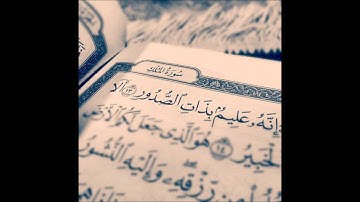 سورة الملك
إِنَّهُ عَلِيمٌ بِذَاتِ الصُّدُورِ ١٣ أَلَا
الْخَبِيرُ ١٤ هُوَ الَّذِي جَعَلَ لَكُمُ الْأَرْضَ
مِن رِّزْقِهِ وَإِلَيْهِ النُّشُورُ